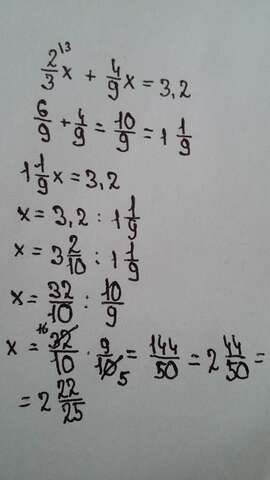 2/3^{\3} x + 4/9 x = 3,2
6/9 + 4/9 = 10/9 = 1 1/9
1 1/9 x = 3,2
x = 3,2 : 1 1/9
x = 3 2/10 : 1 1/9
x = 32/10 : 10/9
x = 32^{16}/10 · 9/10_{5} = 144/50 = 2 44/50 =
= 2 22/25